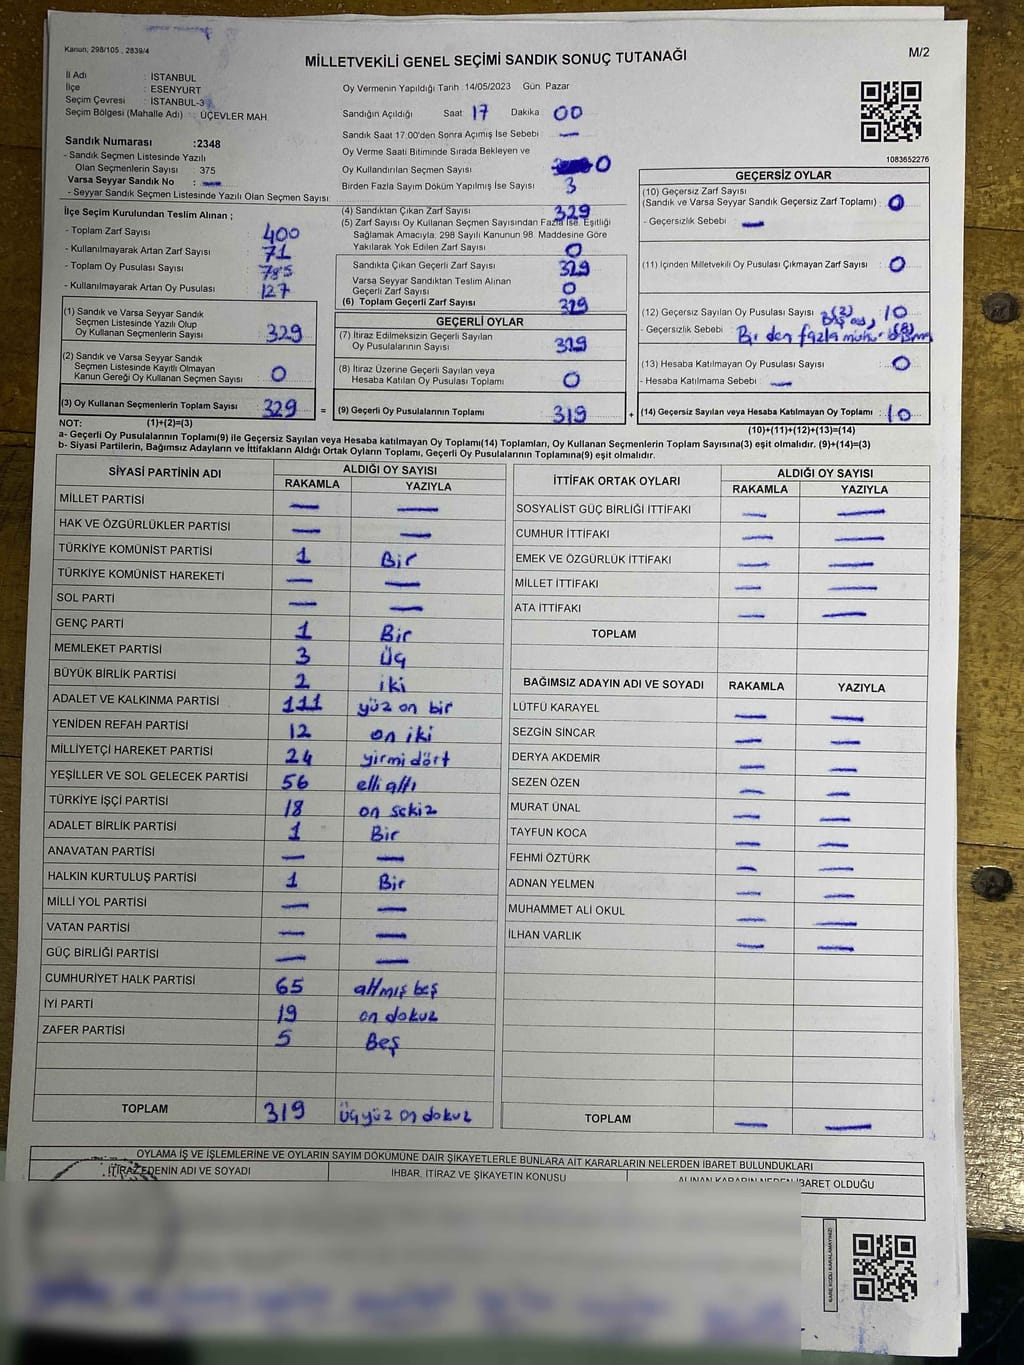 Kanun; 298/105 , 2839/4
MİLLETVEKİLİ GENEL SEÇİMİ SANDIK SONUÇ TUTANAĞI
M/2
İl Adı : İSTANBUL
İlçe : ESENYURT
Seçim Çevresi : İSTANBUL-3
Seçim Bölgesi (Mahalle Adı) : ÜÇEVLER MAH.
Sandık Numarası :2348
- Sandık Seçmen Listesinde Yazılı
Olan Seçmenlerin Sayısı : 375
Varsa Seyyar Sandık No : —
- Seyyar Sandık Seçmen Listesinde Yazılı Olan Seçmen Sayısı:
Oy Vermenin Yapıldığı Tarih :14/05/2023 Gün: Pazar
Sandığın Açıldığı Saat 17 Dakika 00
Sandık Saat 17:00'den Sonra Açımış İse Sebebi : —
Oy Verme Saati Bitiminde Sırada Bekleyen ve
Oy Kullandırılan Seçmen Sayısı : 0
Birden Fazla Sayım Döküm Yapılmış İse Sayısı : 3
1083652276
İlçe Seçim Kurulundan Teslim Alınan ;
- Toplam Zarf Sayısı : 400
- Kullanılmayarak Artan Zarf Sayısı : 71
- Toplam Oy Pusulası Sayısı : 785
- Kullanılmayarak Artan Oy Pusulası : 127
(1) Sandık ve Varsa Seyyar Sandık
Seçmen Listesinde Yazılı Olup
Oy Kullanan Seçmenlerin Sayısı : 329
(2) Sandık ve Varsa Seyyar Sandık
Seçmen Listesinde Kayıtlı Olmayan
Kanun Gereği Oy Kullanan Seçmen Sayısı : 0
(3) Oy Kullanan Seçmenlerin Toplam Sayısı : 329 =
(4) Sandıktan Çıkan Zarf Sayısı : 329
(5) Zarf Sayısı Oy Kullanan Seçmen Sayısından Fazla İse, Eşitliği
Sağlamak Amacıyla, 298 Sayılı Kanunun 98. Maddesine Göre
Yakılarak Yok Edilen Zarf Sayısı : 0
Sandıkta Çıkan Geçerli Zarf Sayısı : 329
Varsa Seyyar Sandıktan Teslim Alınan
Geçerli Zarf Sayısı : 0
(6) Toplam Geçerli Zarf Sayısı : 329
GEÇERLİ OYLAR
(7) İtiraz Edilmeksizin Geçerli Sayılan
Oy Pusulalarının Sayısı : 319
(8) İtiraz Üzerine Geçerli Sayılan veya
Hesaba Katılan Oy Pusulası Toplamı : 0
(9) Geçerli Oy Pusulalarının Toplamı : 319 +
GEÇERSİZ OYLAR
(10) Geçersiz Zarf Sayısı
(Sandık ve Varsa Seyyar Sandık Geçersiz Zarf Toplamı) : 0
- Geçersizlik Sebebi : —
(11) İçinden Milletvekili Oy Pusulası Çıkmayan Zarf Sayısı : 0
(12) Geçersiz Sayılan Oy Pusulası Sayısı : 10
- Geçersizlik Sebebi : Bir den fazla mühür
(13) Hesaba Katılmayan Oy Pusulası Sayısı : 0
- Hesaba Katılmama Sebebi : —
(14) Geçersiz Sayılan veya Hesaba Katılmayan Oy Toplamı : 10
NOT: (1)+(2)=(3)
(10)+(11)+(12)+(13)=(14)
a- Geçerli Oy Pusulalarının Toplamı(9) ile Geçersiz Sayılan veya Hesaba katılmayan Oy Toplamı(14) Toplamları, Oy Kullanan Seçmenlerin Toplam Sayısına(3) eşit olmalıdır. (9)+(14)=(3)
b- Siyasi Partilerin, Bağımsız Adayların ve İttifakların Aldığı Ortak Oyların Toplamı, Geçerli Oy Pusulalarının Toplamına(9) eşit olmalıdır.
SİYASİ PARTİNİN ADI ALDIĞI OY SAYISI
RAKAMLA YAZIYLA
MİLLET PARTİSİ — —
HAK VE ÖZGÜRLÜKLER PARTİSİ — —
TÜRKİYE KOMÜNİST PARTİSİ 1 Bir
TÜRKİYE KOMÜNİST HAREKETİ — —
SOL PARTİ — —
GENÇ PARTİ 1 Bir
MEMLEKET PARTİSİ 3 üç
BÜYÜK BİRLİK PARTİSİ 2 iki
ADALET VE KALKINMA PARTİSİ 111 yüz on bir
YENİDEN REFAH PARTİSİ 12 on iki
MİLLİYETÇİ HAREKET PARTİSİ 24 yirmi dört
YEŞİLLER VE SOL GELECEK PARTİSİ 56 elli altı
TÜRKİYE İŞÇİ PARTİSİ 18 on sekiz
ADALET BİRLİK PARTİSİ 1 Bir
ANAVATAN PARTİSİ — —
HALKIN KURTULUŞ PARTİSİ 1 Bir
MİLLİ YOL PARTİSİ — —
VATAN PARTİSİ — —
GÜÇ BİRLİĞİ PARTİSİ — —
CUMHURİYET HALK PARTİSİ 65 altmış beş
İYİ PARTİ 19 on dokuz
ZAFER PARTİSİ 5 Beş
TOPLAM 319 üçyüz on dokuz
İTTİFAK ORTAK OYLARI ALDIĞI OY SAYISI
RAKAMLA YAZIYLA
SOSYALİST GÜÇ BİRLİĞİ İTTİFAKI — —
CUMHUR İTTİFAKI — —
EMEK VE ÖZGÜRLÜK İTTİFAKI — —
MİLLET İTTİFAKI — —
ATA İTTİFAKI — —
TOPLAM
BAĞIMSIZ ADAYIN ADI VE SOYADI RAKAMLA YAZIYLA
LÜTFÜ KARAYEL — —
SEZGİN SİNCAR — —
DERYA AKDEMİR — —
SEZEN ÖZEN — —
MURAT ÜNAL — —
TAYFUN KOCA — —
FEHMİ ÖZTÜRK — —
ADNAN YELMEN — —
MUHAMMET ALİ OKUL — —
İLHAN VARLIK — —
TOPLAM — —
OYLAMA İŞ VE İŞLEMLERİNE VE OYLARIN SAYIM DÖKÜMÜNE DAİR ŞİKAYETLERLE BUNLARA AİT KARARLARIN NELERDEN İBARET BULUNDUKLARI
İTİRAZ EDENİN ADI VE SOYADI İHBAR, İTİRAZ VE ŞİKAYETİN KONUSU ALINAN KARARIN NEDEN İBARET OLDUĞU
KARE KODU KARALAMAYINIZ!